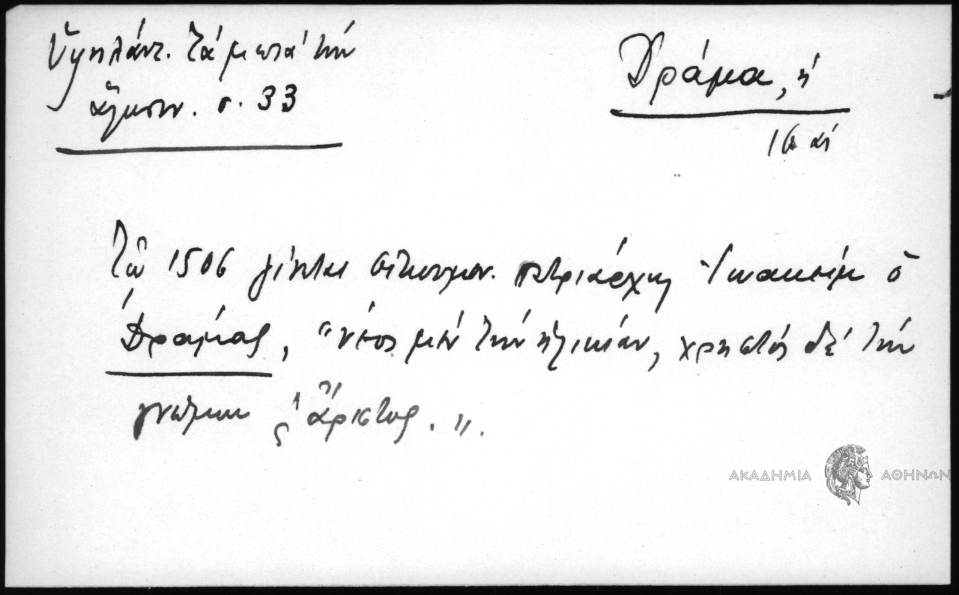 Ὑψηλάντ. Τά μετά τήν
ἅλωσιν. σ. 33
Δράμα, ἡ
16 αἰ
Τῷ 1506 γίνεται οἰκουμεν. πατριάρχης Ἰωακείμ ὁ
Δράμας, "νέος μέν τήν ἡλικίαν, χρηστός δέ τήν
γνώμην κ ἄριστος.".
ΑΚΑΔΗΜΙΑ ΑΘΗΝΩΝ